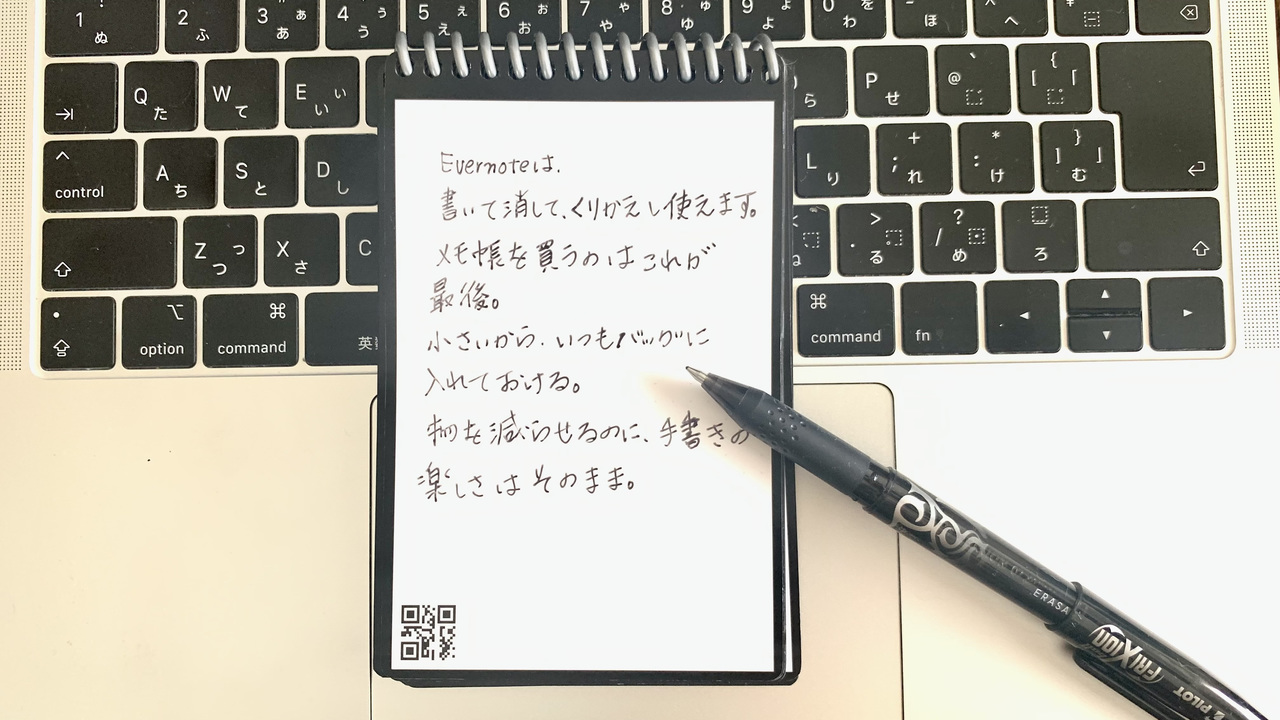 ! 1 ぬ
" 2 ふ
# 3 ぁ あ
$ 4 ぅ う
% 5 ぇ え
& 6 ぉ お
' 7 ゃ や
( 8 ゅ ゆ
) 9 ょ よ
0 を わ
- ほ
^ へ
¥ -
Q た
W て
E ぃ い
ら
P せ
@ `
{ [ 「
control
A ち
S と
D し
L り
+ ; れ
* : け
} ] 」 む
Z っ つ
X さ
C
< ね
> . る
? / め
ろ
option
command
英
command
fn
Evernoteは、
書いて消して、くりかえし使えます。
メモ帳を買うのはこれが
最後。
小さいから、いつもバッグに
入れておける。
物を減らせるのに、手書きの
楽しさはそのまま。
ERASA
FRIXION
PILOT